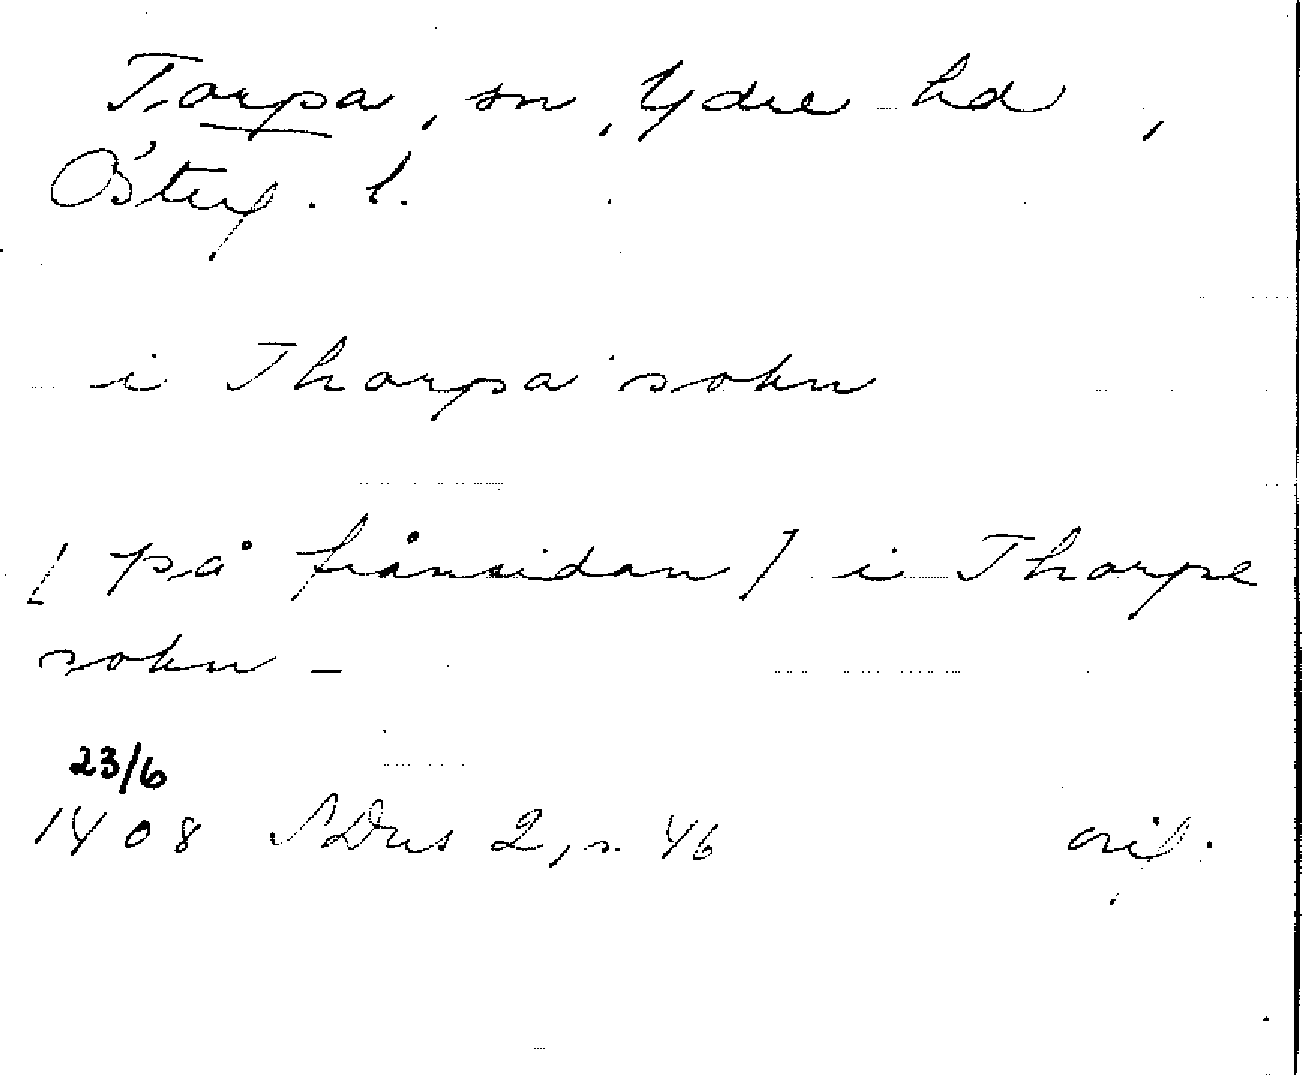 Torpa, sn, Ydre hd,
Österg. l.
i Thorpa sokn
[på frånsidan] i Thorpe
sokn -
23/6
1408 SDns 2, s. 46 orig.